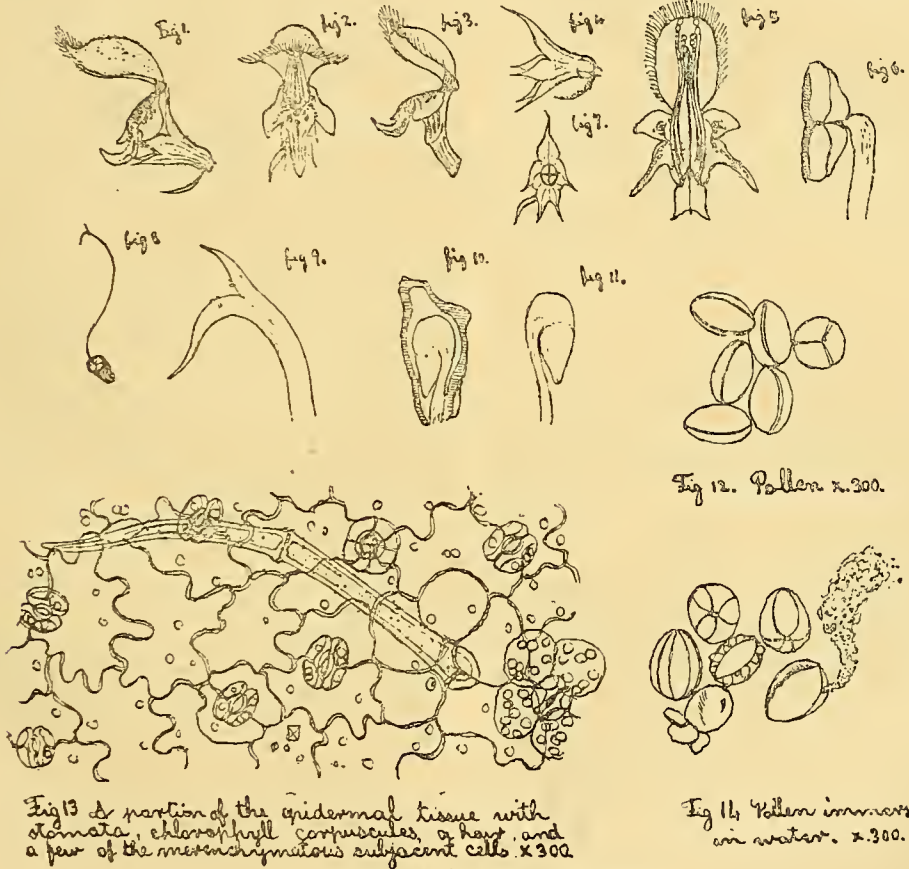 Fig 1.
fig 2.
fig 3.
fig 4
fig 5
fig 6.
fig 7.
fig 8
fig 9.
fig 10.
fig 11.
Fig 12. Pollen x.300.
Fig 13 A portion of the epidermal tissue with
stomata, chlorophyll corpuscules, a hair, and
a few of the merenchymatous subjacent cells. x 300
Fig 14 Pollen immers
in water. x.300.